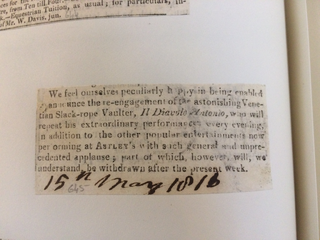 from Ten till Four
—Equestrian Tuition, as usual; for particulars, in-
of Mr. W. Davis, jun.
We feel ourselves peculiarly happy in being enabled
to announce the re-engagement of the astonishing Vene-
tian Slack-rope Vaulter, Il Diavolo Antonio, who will
repeat his extraordinary performances every evening,
in addition to the other popular entertainments now
performing at ASTLEY's with such general and unpre-
cedented applause; part of which, however, will, we
understand, be withdrawn after the present week.
15th May 1816